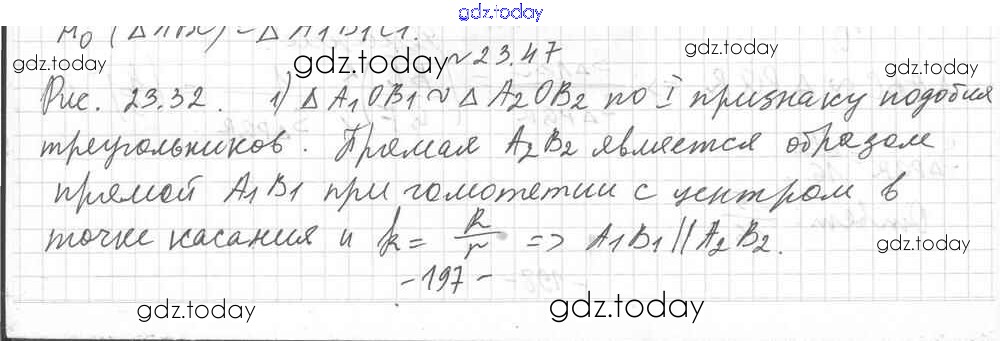 gdz.today
H₀ (△ABC) = △A₁B₁C₁.
№23.47
gdz.today gdz.today gdz.today
Рис. 23.32. 1) △A₁OB₁ ∾ △A₂OB₂ по I признаку подобия
треугольников. Прямая A₂B₂ является образом
прямой A₁B₁ при гомотетии с центром в
точке касания и k = R/r => A₁B₁ || A₂B₂.
gdz.today gdz.today
-197-
gdz.today gdz.today